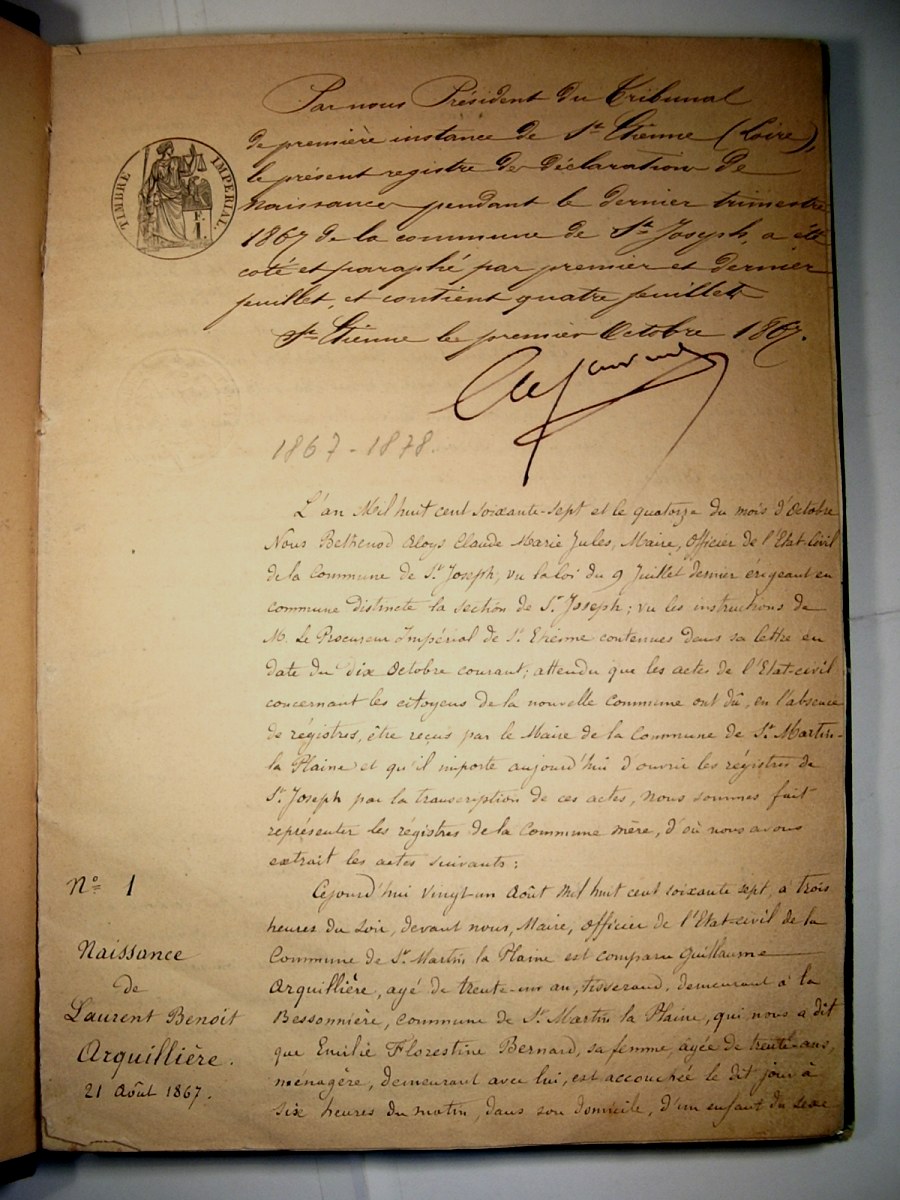 Par nous Président du Tribunal
de première instance de St Etienne (Loire),
le présent registre de déclarations de
Naissances pendant le dernier trimestre
1867 de la commune de St Joseph, a été
coté et paraphé par premier et dernier
feuillet, et contient quatre feuillets
St Etienne le premier Octobre 1867.
TIMBRE IMPERIAL
F.
1.
1867-1878.
L'an Mil huit cent soixante-sept et le quatorze du mois d'Octobre
Nous Bethenod Aloys Claude Marie Jules, Maire, Officier de l'Etat-Civil
de la Commune de St Joseph, vu la loi du 9 Juillet dernier érigeant en
commune distincte la section de St Joseph; vu les instructions de
M. Le Procureur Impérial de St Etienne contenues dans sa lettre en
date du dix Octobre courant; attendu que les actes de l'Etat-civil
concernant les citoyens de la nouvelle Commune ont dû, en l'absence
de régistres, être reçus par le Maire de la Commune de St Martin-
la Plaine et qu'il importe aujourd'hui d'ouvrir les régistres de
St Joseph par la transcription de ces actes, nous sommes fait
représenter les régistres de la Commune mère, d'où nous avons
extrait les actes suivants:
N° 1
Naissance
de
Laurent Benoit
Arquillière.
21 Août 1867.
Cejourd'hui vingt-un Août Mil huit cent soixante sept, à trois
heures du soir, devant nous, Maire, Officier de l'Etat-civil de la
Commune de St Martin la Plaine est comparu Guillaume
Arquillière, agé de trente-un an, tisserand, demeurant à la
Bessonnière, commune de St Martin la Plaine, qui nous a dit
que Emilie Florestine Bernard, sa femme, âgée de trente-ans,
ménagère, demeurant avec lui, est accouchée le dit jour à
six heures du matin, dans son domicile, d'un enfant du sexe